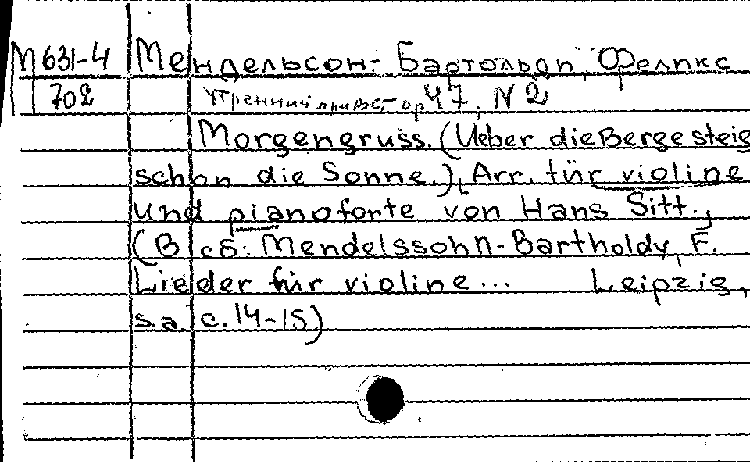 М631-4 Мендельсон-Бартольди, Феликс
702 Утренний привет op 47, N2
Morgengruss. (Ueber die Berge steig
schon die Sonne.), Arr. für violine
und pianoforte von Hans Sitt.,
(В сб: Mendelssohn-Bartholdy, F.
Lieder für violine... Leipzig,
s.a. c.14-15)